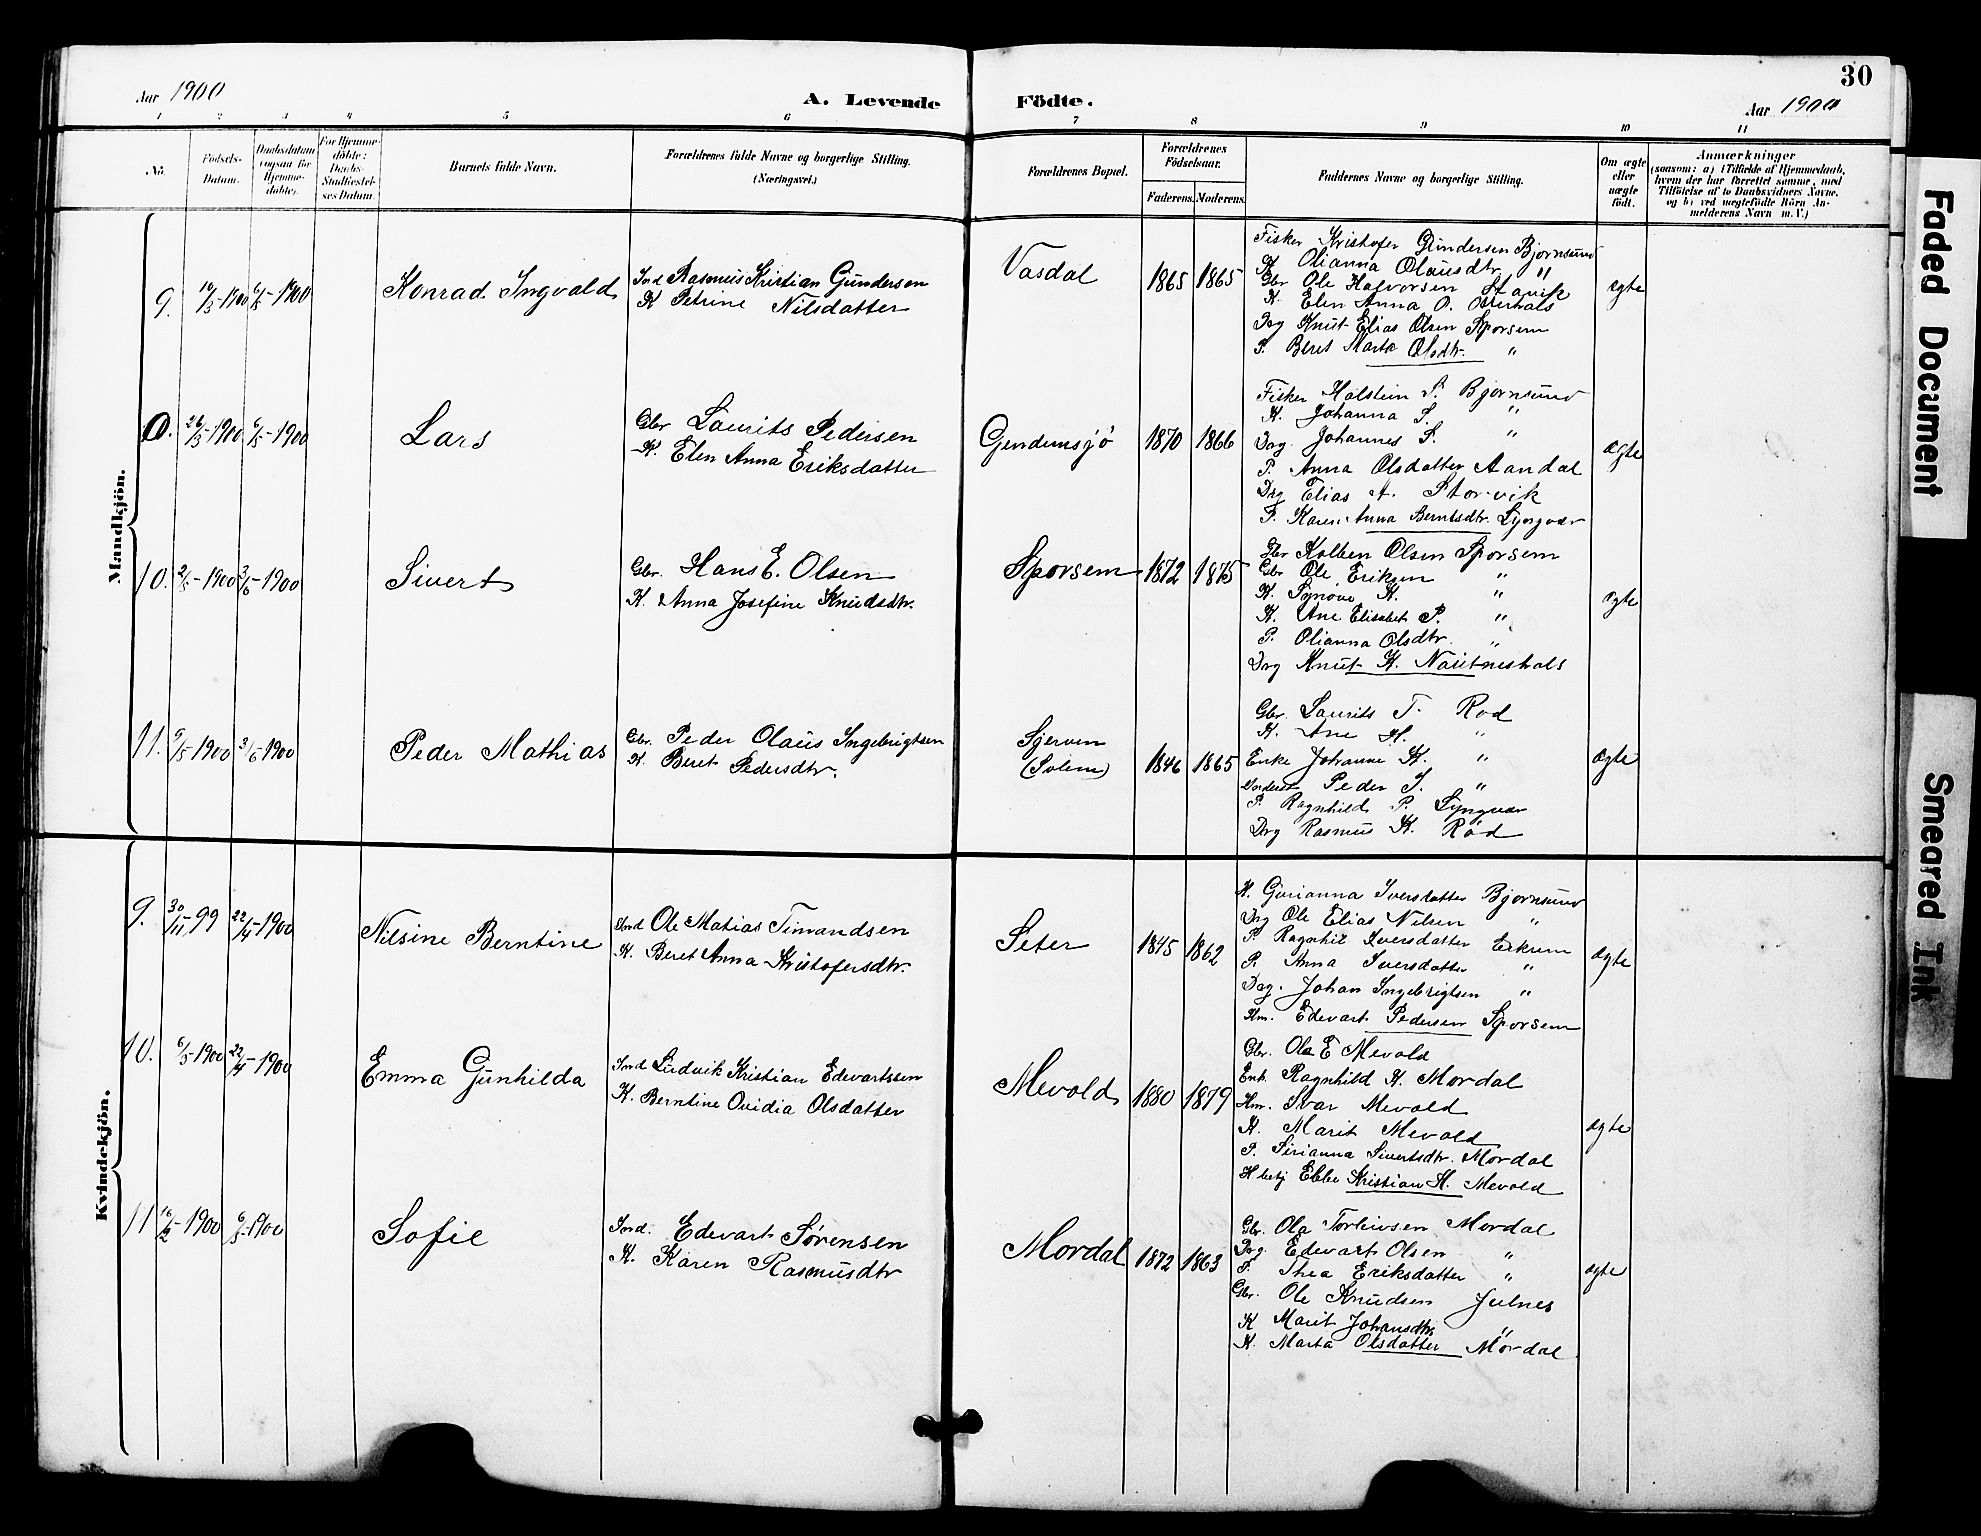 30
Aar 1900
A. Levende Födte.
Aar 1900
1 2 3 4 5 6 7 8 9 10 11
No.
Födsels-
Datum.
Daabsdatum
(ogsaa for
Hjemme-
döbte).
For Hjemme-
döbte:
Daabs-
Stadfæstel-
ses Datum.
Barnets fulde Navn.
Forældrenes fulde Navne og borgerlige Stilling.
(Næringsvei.)
Forældrenes Bopæl.
Forældrenes
Födselsaar.
Faderens.
Moderens.
Faddernes Navne og borgerlige Stilling.
Om ægte
eller
uægte
födt.
Anmærkninger
(saasom: a) i Tilfælde af Hjemmedaab,
hvem der har forrettet samme, med
Tilföielse af to Daabsvidners Navne,
og b) ved uægtefödte Börn An-
melderens Navn m. V.)
Mandkjön.
9. 10/3-1900 6/5-1900
Konrad Ingvald
Ind Rasmus Kristian Gundersen
K Petrine Nilsdatter
Vasdal
1865 1865
Fisker Kristofer Gundersen Bjornsund
K Olianna Olausdtr "
Gbr Ole Halvorsen Stavik
K. Elen Anna O. Otterhals
Drg Knut Elias Olsen Sporsem
P. Beret Marta Olsdtr. "
ægte
0. 26/3-1900 6/5-1900
Lars
Gbr Laurits Pedersen
K. Elen Anna Eriksdatter
Gendemsjø
1870 1866
Fisker Holstein S. Bjornsund
K. Johanna S. "
Drg. Johannes S. "
P. Anna Olsdatter Aandal
Drg Elias A. Storvik
P. Karen Anna Berntsdtr. Lyngvær
ægte
10. 2/5-1900 3/6-1900
Sivert
Gbr. Hans E. Olsen
K. Anna Josefine Knudsdtr.
Sporsem
1872 1875
Gbr Kolben Olsen Sporsem
Gbr Ole Eriksen "
K. Synove K. "
K. Ane Elisabet P. "
P. Olianna Olsdtr. "
Drg Knut K. Nautneshals
ægte
11. 9/5 1900 3/6-1900
Peder Mathias
Gbr. Peder Olaus Ingebrigtsen
K. Beret Pedersdtr.
Sjerven
(Solem)
1846 1865
Gbr. Laurits T. Rød
K. Ane H. "
Enke Johanne K. "
Peder I. "
P. Ragnhild P. Lyngvær
Drg Rasmus K. Rød
ægte
Kvindekjön.
9. 30/11 99 22/4-1900
Nilsine Berntine
Ind Ole Matias Timandsen
K. Beret Anna Kristofersdtr.
Seter
1845 1862
K. Gurianna Iversdatter Bjornsund
Drg Ole Elias Nilsen "
P. Ragnhil Iversdatter Eikrem
P. Anna Iversdatter "
Drg. Johan Ingebrigtsen "
Hm. Edevart Pedersen Sporsem
ægte
10. 6/3-1900 22/4-1900
Emma Gunhilda
Ind Ludvik Kristian Edevartssen
K. Berntine Ovidia Olsdatter
Mevold
1880 1879
Gbr. Ola E Mevold
Enk. Ragnhild K. Mordal
Hm. Ivar Mevold
K. Marit Mevold
P. Sirianna Sivertsdtr. Mordal
Ebbe Kristian H. Mevold
ægte
11 16/2-1900 6/5-1900
Sofie
Ind. Edevart Sørensen
K. Karen Rasmusdtr
Mordal
1872 1863
Gbr. Ola Torleivsen Mordal
Drg Edevart Olsen "
P. Thea Eriksdatter "
Gbr. Ole Knudsen Julnes
K Marit Johansdtr "
K. Marta Olsdatter Mordal
ægte
Faded Document
Smeared Ink